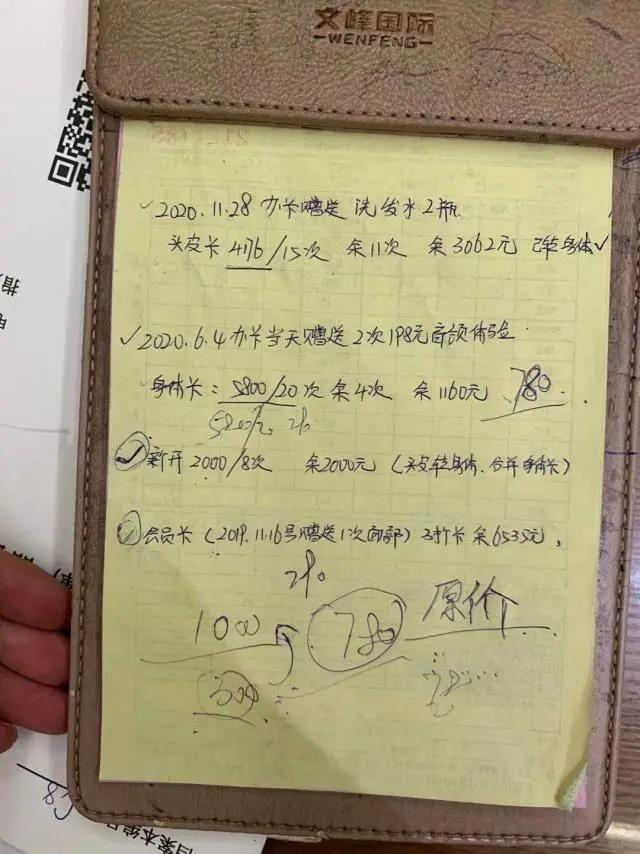 文峰国际
WENFENG
2020.11.28 办卡赠送 洗发水2瓶
头皮卡 4176/15次 余11次 余3062元 已转身体
2020.6.4 办卡当天赠送2次198元肩颈体验
身体卡: 5800/20次 余4次 余1160元 780
新开 2000/8次 余2000元 (头皮转身体、合并身体卡)
会员卡 (2019.11.16号赠送1次面部) 2折卡 余6535元,
2折
1000 780 原价
300